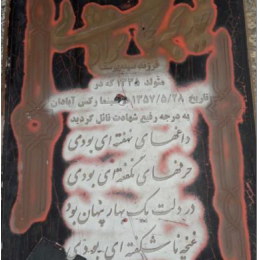 فرزند
متولد ۱۳۳۸ که در
تاریخ ۱۳۵۷/۵/۲۸ سینما رکس آبادان
به درجه رفیع شهادت نائل گردید
داغهای نهفته ای بودی
حرفهای نگفته ای بودی
در دلت یک بهار پنهان بود
غنچه ناشکفته ای بودی